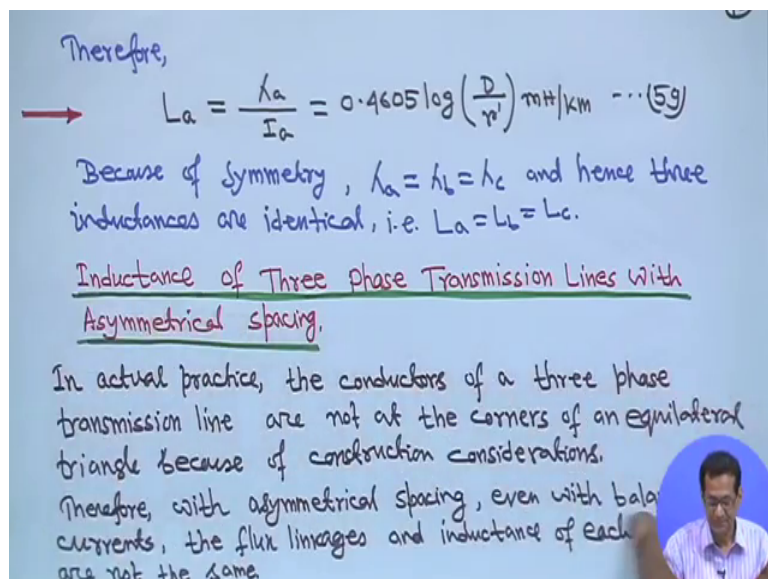 Therefore,
La = λa / Ia = 0.4605 log (D/r') mH/km ---(59)
Because of symmetry, λa = λb = λc and hence three
inductances are identical, i.e. La = Lb = Lc.
Inductance of Three Phase Transmission Lines with
Asymmetrical spacing.
In actual practice, the conductors of a three phase
transmission line are not at the corners of an equilateral
triangle because of construction considerations.
Therefore, with asymmetrical spacing, even with
currents, the flux linkages and inductance of each
are not the same